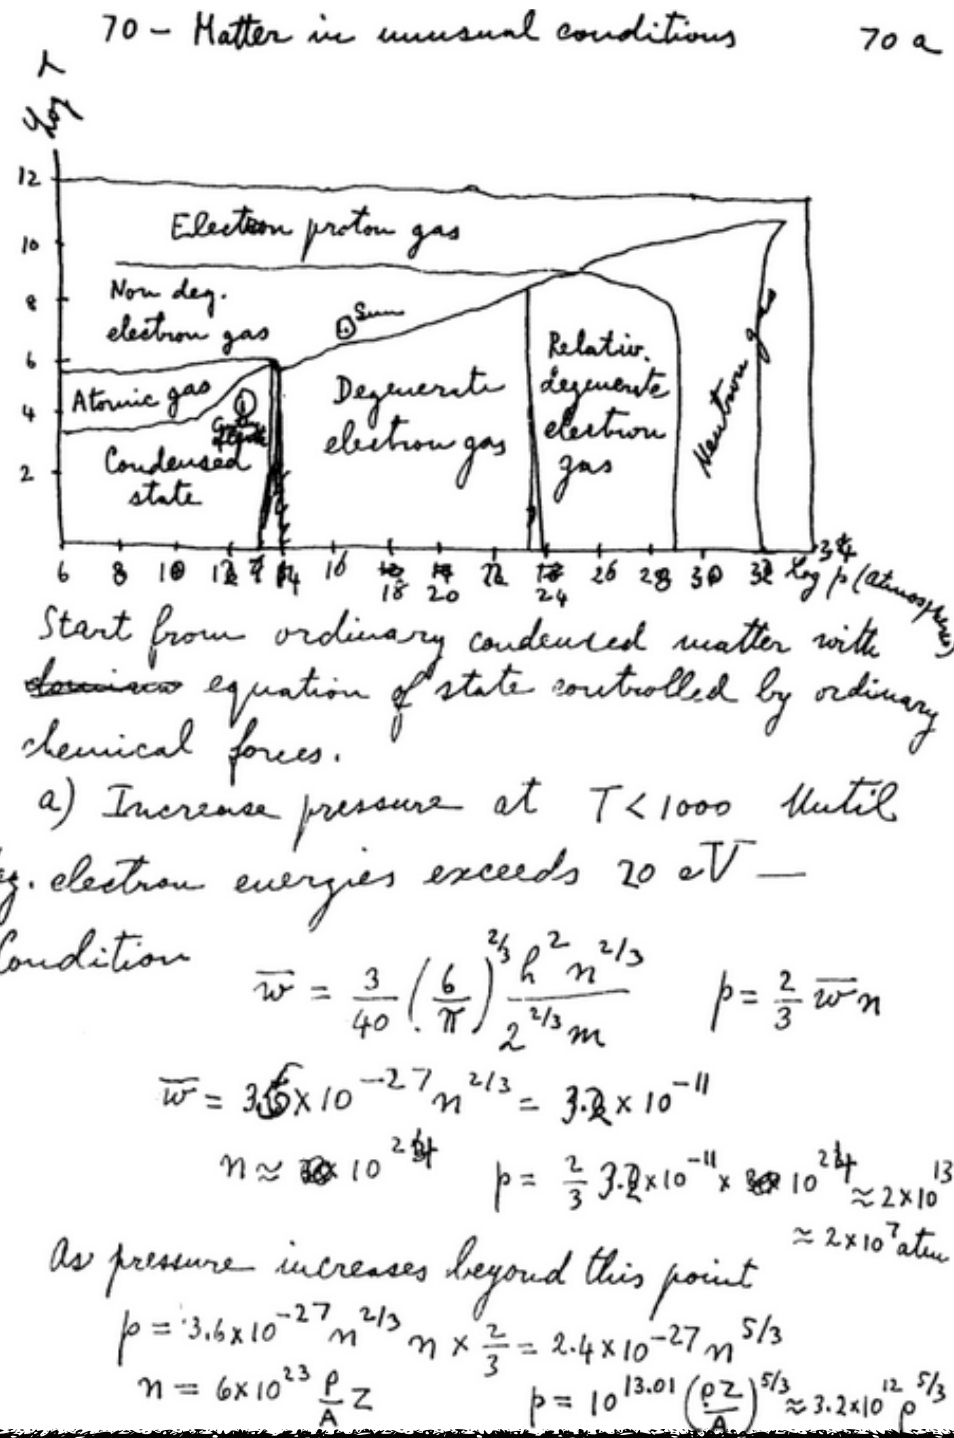 70 - Matter in unusual conditions 70 a
Log T
12
Electron proton gas
10
Non deg.
8
electron gas
Sun
6
Relativ.
Atomic gas
Degenerate
degenerate
4
electron gas
electron
gas
Neutron gas
Condensed
2
state
6 8 10 12 14 16 18 20 22 24 26 28 30 32 34 log p (atmospheres)
Start from ordinary condensed matter with
equation of state controlled by ordinary
chemical forces.
a) Increase pressure at T < 1000 Until
deg. electron energies exceeds 20 eV —
Condition
w̅ = 3/40 (6/π)^2/3 h^2 n^2/3 / 2^2/3 m p = 2/3 w̅ n
w̅ = 3.6 × 10^-27 n^2/3 = 3.2 × 10^-11
n ≈ 10^24 p = 2/3 3.2 × 10^-11 × 10^24 ≈ 2 × 10^13
≈ 2 × 10^7 atm
As pressure increases beyond this point
p = 3.6 × 10^-27 n^2/3 n × 2/3 = 2.4 × 10^-27 n^5/3
n = 6 × 10^23 ρ/A Z p = 10^13.01 (ρZ/A)^5/3 ≈ 3.2 × 10^12 ρ^5/3